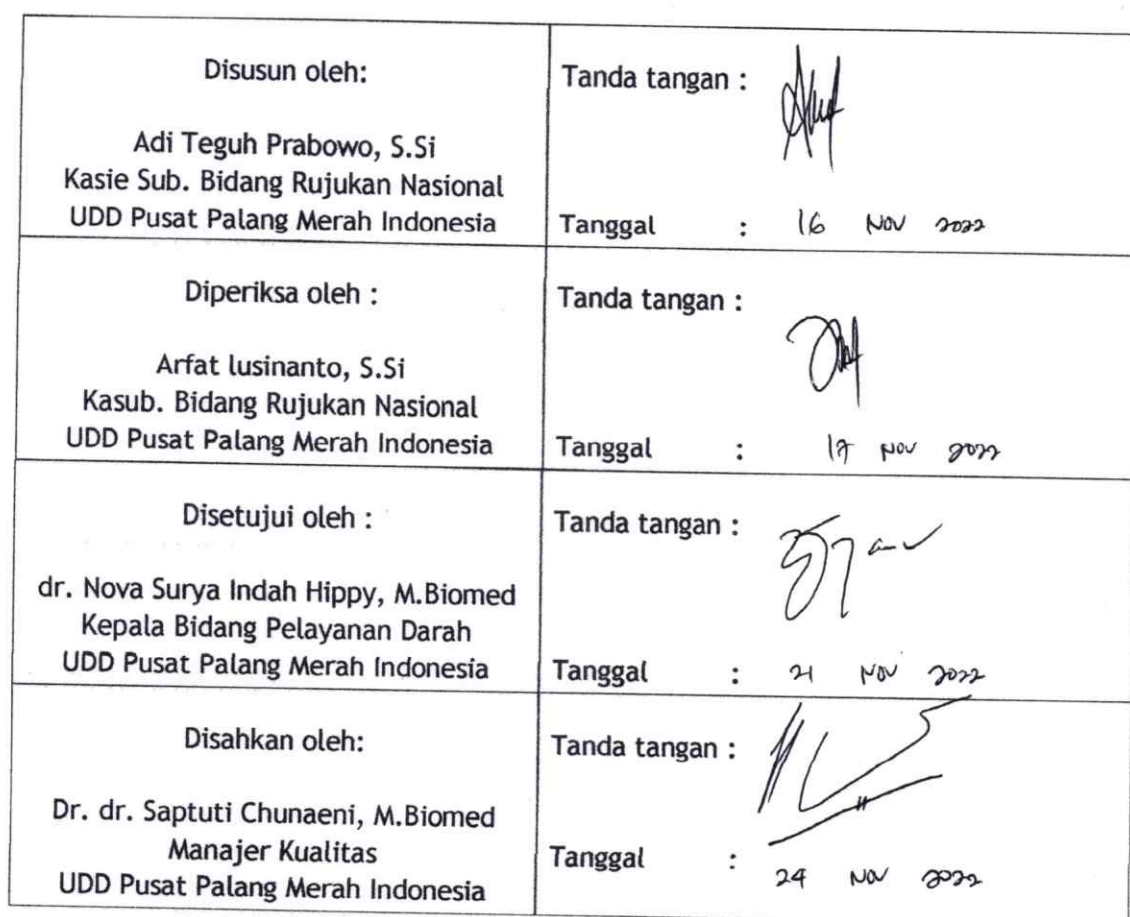 Disusun oleh:
Adi Teguh Prabowo, S.Si
Kasie Sub. Bidang Rujukan Nasional
UDD Pusat Palang Merah Indonesia
Tanda tangan :
Tanggal : 16 NOV 2022
Diperiksa oleh :
Arfat lusinanto, S.Si
Kasub. Bidang Rujukan Nasional
UDD Pusat Palang Merah Indonesia
Tanda tangan :
Tanggal : 17 NOV 2022
Disetujui oleh :
dr. Nova Surya Indah Hippy, M.Biomed
Kepala Bidang Pelayanan Darah
UDD Pusat Palang Merah Indonesia
Tanda tangan :
Tanggal : 21 NOV 2022
Disahkan oleh:
Dr. dr. Saptuti Chunaeni, M.Biomed
Manajer Kualitas
UDD Pusat Palang Merah Indonesia
Tanda tangan :
Tanggal : 24 NOV 2022